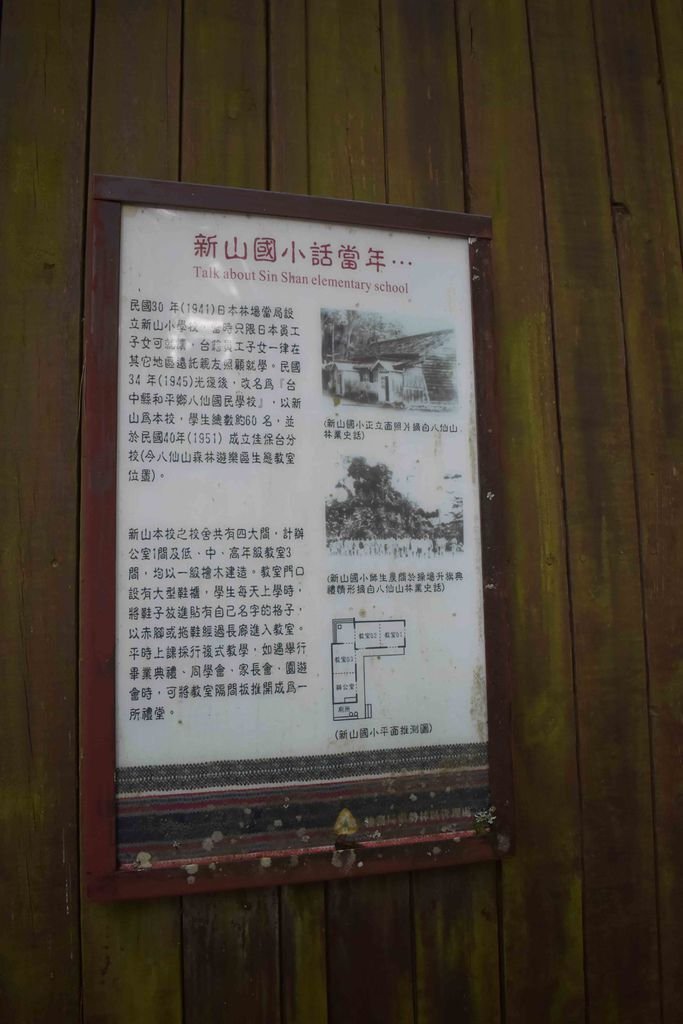 新山國小話當年…
Talk about Sin Shan elementary school
民國30 年(1941)日本林場當局設
立新山小學校，當時只限日本員工
子女可就讀，台籍員工子女一律在
其它地區遠託親友照顧就學。民國
34 年(1945)光復後，改名為『台
中縣和平鄉八仙國民學校』，以新
山為本校，學生總數約60 名，並
於民國40年(1951) 成立佳保台分
校(今八仙山森林遊樂區生態教室
位置)。
新山本校之校舍共有四大間，計辦
公室1間及低、中、高年級教室3
間，均以一級檜木建造。教室門口
設有大型鞋櫃，學生每天上學時，
將鞋子放進貼有自己名字的格子，
以赤腳或拖鞋經過長廊進入教室。
平時上課採行複式教學，如遇舉行
畢業典禮、周學會、家長會、園遊
會時，可將教室隔間板推開成為一
所禮堂。
(新山國小正立面照片摘自八仙山
林業史話)
(新山國小師生晨間於操場升旗典
禮情形摘自八仙山林業史話)
教室02 教室01
教室03
辦公室
廁所
(新山國小平面推測圖)